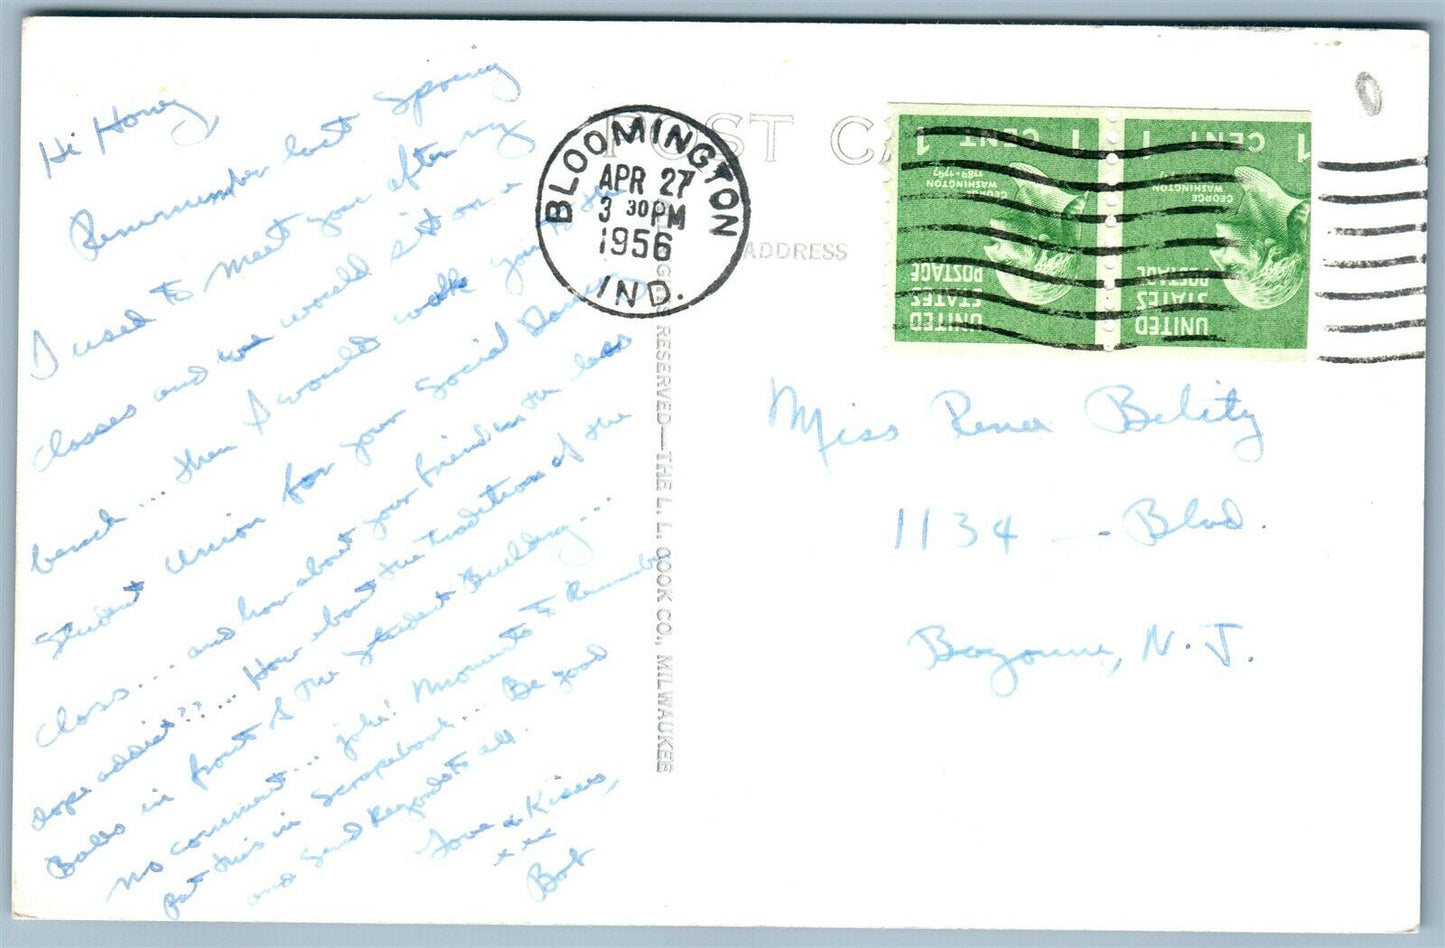 Hi Honey,
Remember last Spring
I used to meet you after my
classes and we would sit on a
bench... then I would walk you to the
Student Union for your Social Dancing
class... and how about your friend in the class
dope addict??.... How about the tradition of the
Balls in front of the Student Building...
no comment... joke! Moments to Remember
put this in scrapbook... Be good
and send Regards to all.
Love & Kisses,
xxx
Bob
POST CA
ADDRESS
BLOOMINGTON
APR 27
3 30 PM
1956
IND.
RESERVED—THE L. L. COOK CO., MILWAUKEE
1 CENT 1
GEORGE
WASHINGTON
1789-1797
UNITED
STATES
POSTAGE
1 CENT 1
GEORGE
WASHINGTON
UNITED
STATES
POSTAGE
Miss Rena Belitz
1134 — Blvd.
Bayonne, N. J.